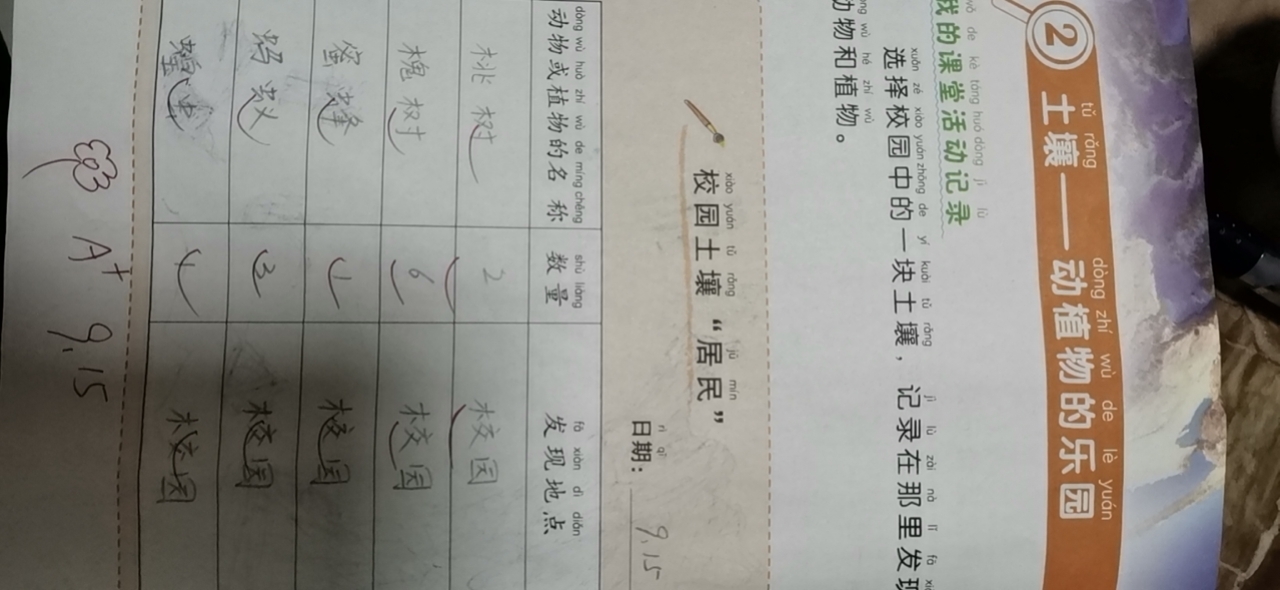 2 土壤——动植物的乐园
tǔ rǎng dòng zhí wù de lè yuán
wǒ de kè táng huó dòng jì lù
我的课堂活动记录
xuǎn zé xiào yuán zhōng de yí kuài tǔ rǎng jì lù zài nà lǐ fā
选择校园中的一块土壤，记录在那里发现
wù hé zhí wù
动物和植物。
xiào yuán tǔ rǎng jū mín
校园土壤“居民”
rì qī
日期：9.15
dòng wù huò zhí wù de míng chēng shù liàng fā xiàn dì diǎn
动物或植物的名称 数量 发现地点
桃树 2 校园
槐树 6 校园
蜜蜂 1 校园
蚂蚁 3 校园
校园
A+ 9.15